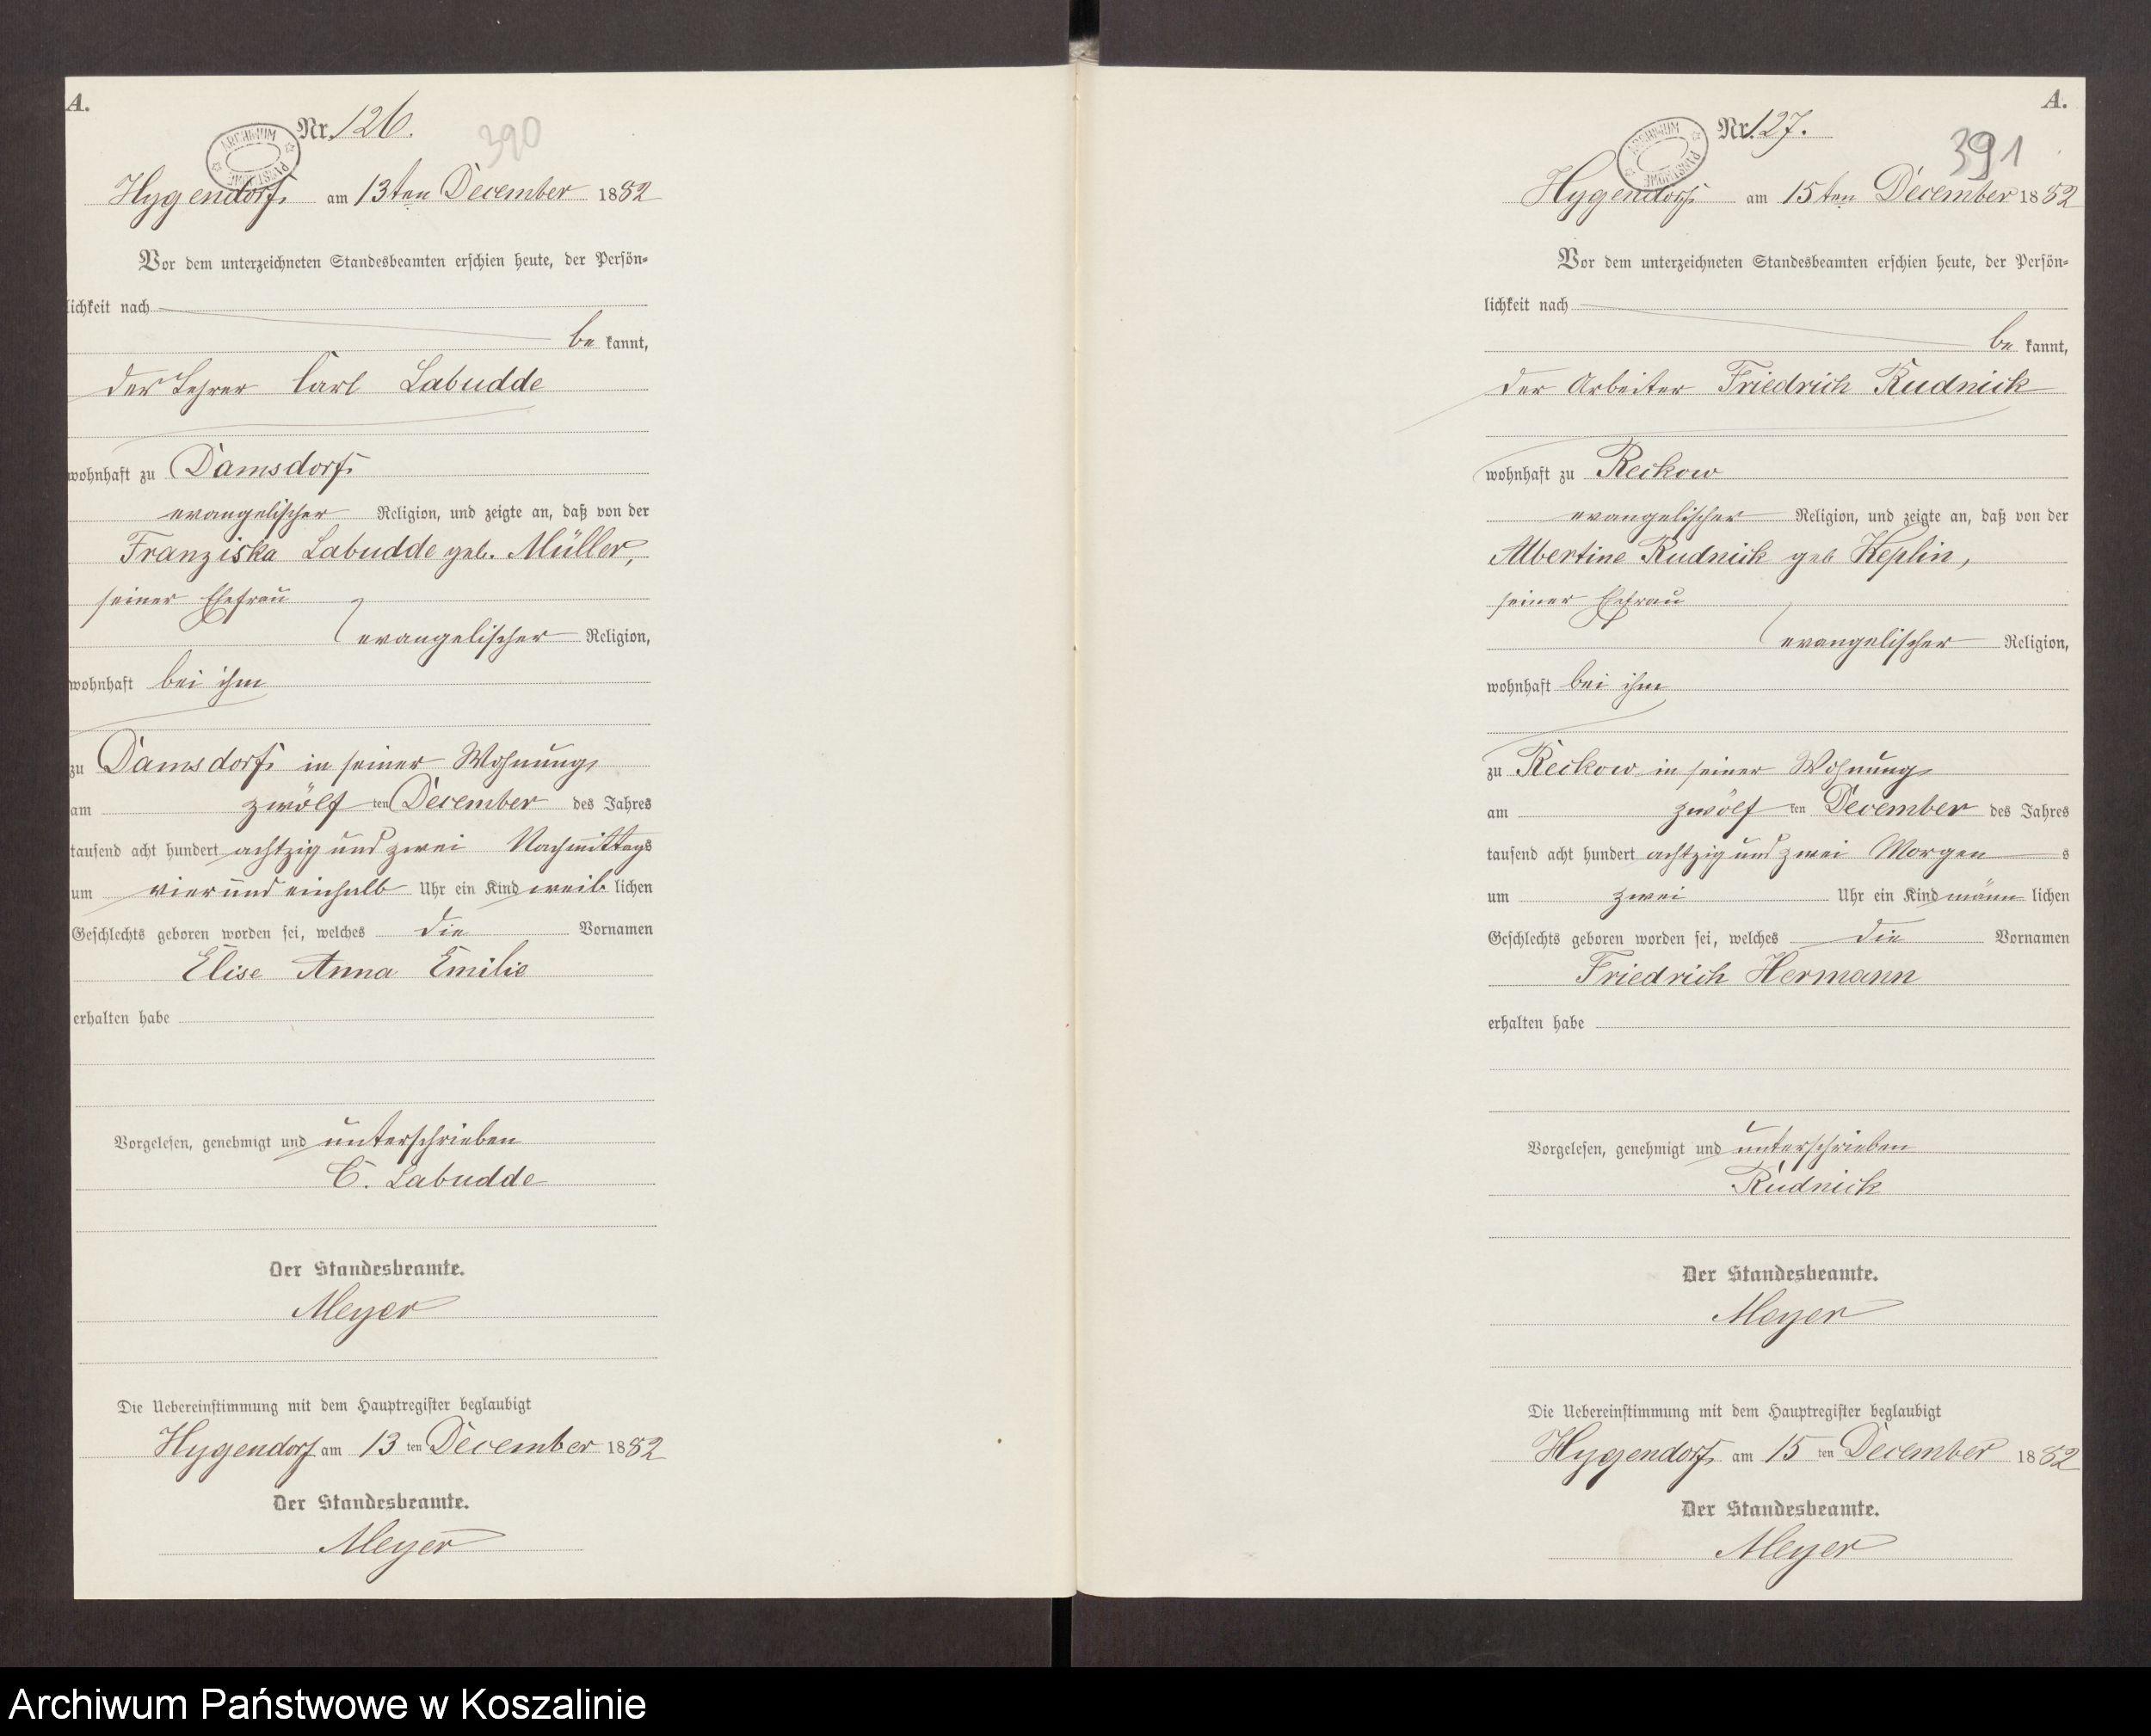 A.
Nr. 126.
390
ARCHIWUM PAŃSTWOWE
Hygendorf am 13ten December 1882
Vor dem unterzeichneten Standesbeamten erschien heute, der Persön-
lichkeit nach
be kannt,
der Lehrer Carl Labudde
wohnhaft zu Damsdorf
evangelischer Religion, und zeigte an, daß von der
Franziska Labudde geb. Müller,
seiner Ehefrau
evangelischer Religion,
wohnhaft bei ihm
zu Damsdorf in seiner Wohnung,
am zwölf ten December des Jahres
tausend acht hundert achtzig und zwei Nachmittags
um vier und einhalb Uhr ein Kind weib lichen
Geschlechts geboren worden sei, welches die Vornamen
Elise Anna Emilie
erhalten habe
Vorgelesen, genehmigt und unterschrieben
C. Labudde
Der Standesbeamte.
Meyer
Die Uebereinstimmung mit dem Hauptregister beglaubigt
Hygendorf am 13 ten December 1882
Der Standesbeamte.
Meyer
A.
Nr. 127.
391
ARCHIWUM PAŃSTWOWE
Hygendorf am 15ten December 1882
Vor dem unterzeichneten Standesbeamten erschien heute, der Persön-
lichkeit nach
be kannt,
der Arbeiter Friedrich Rudnick
wohnhaft zu Reckow
evangelischer Religion, und zeigte an, daß von der
Albertine Rudnick geb Keplin,
seiner Ehefrau
evangelischer Religion,
wohnhaft bei ihm
zu Reckow in seiner Wohnung
am zwölf ten December des Jahres
tausend acht hundert achtzig und zwei Morgen s
um zwei Uhr ein Kind männ lichen
Geschlechts geboren worden sei, welches die Vornamen
Friedrich Hermann
erhalten habe
Vorgelesen, genehmigt und unterschrieben
Rudnick
Der Standesbeamte.
Meyer
Die Uebereinstimmung mit dem Hauptregister beglaubigt
Hygendorf am 15 ten December 1882
Der Standesbeamte.
Meyer
Archiwum Państwowe w Koszalinie